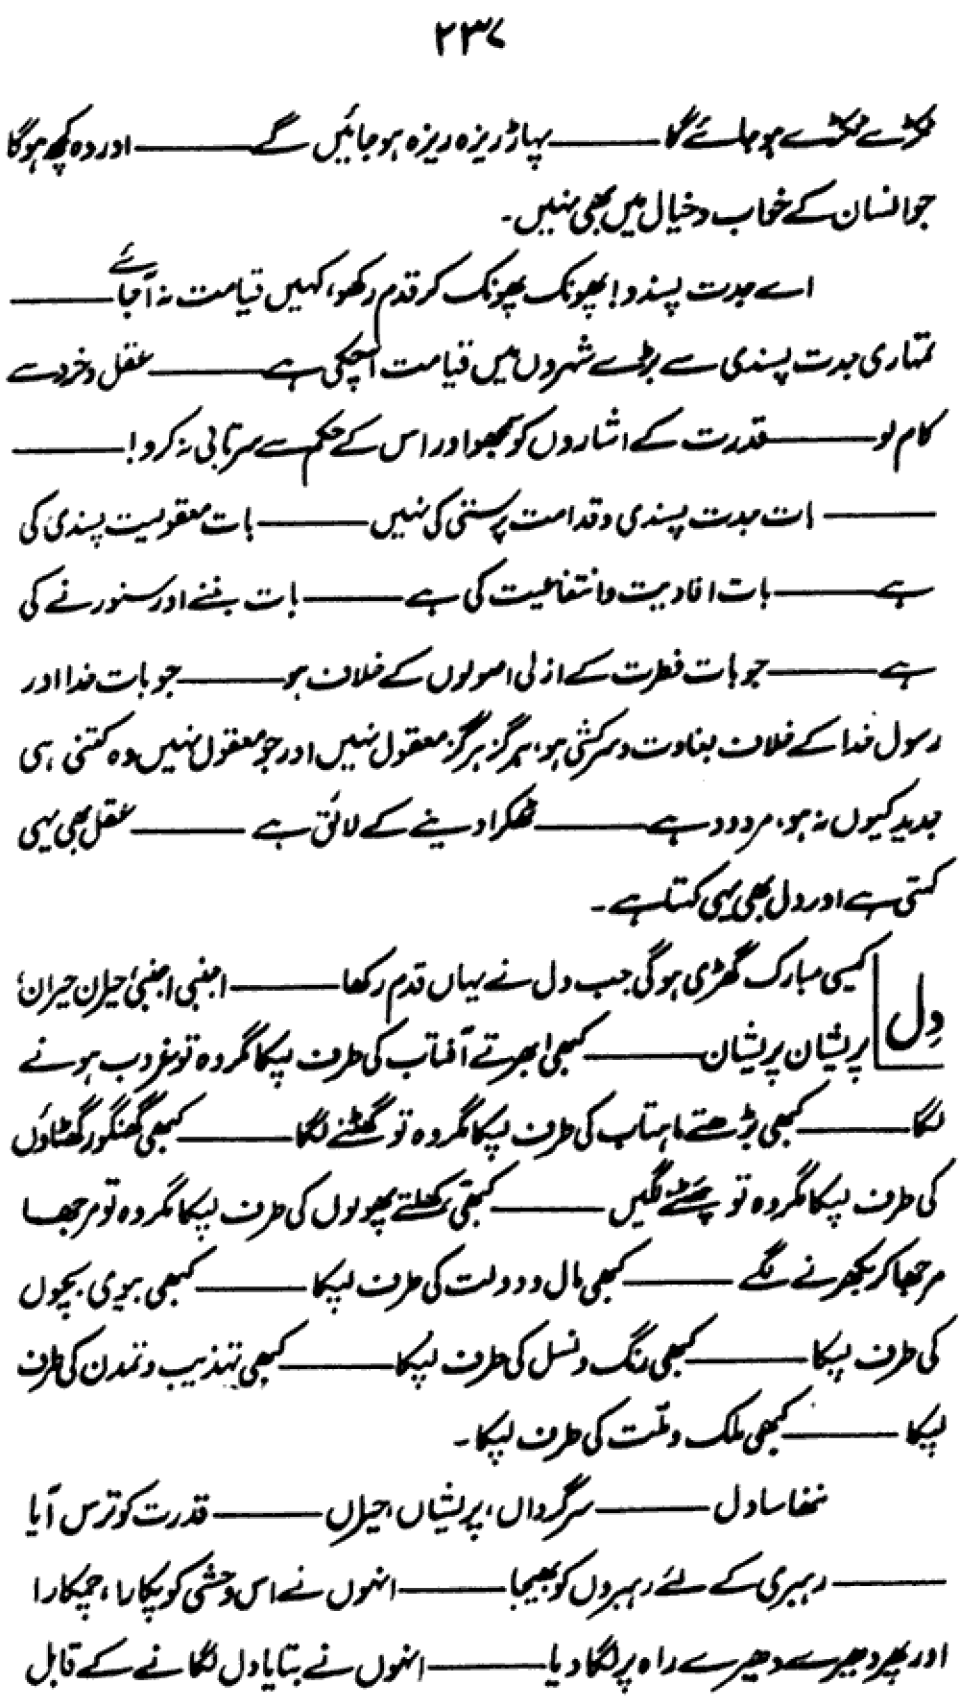 ۲۳۷
ٹکڑے ٹکڑے ہو جائے گا ——— پہاڑ ریزہ ریزہ ہو جائیں گے ——— اور وہ کچھ ہوگا
جو انسان کے خواب و خیال میں بھی نہیں۔
اے جدت پسندو! پھونک پھونک کر قدم رکھو، کہیں قیامت نہ آجائے ———
تمہاری جدت پسندی سے بڑے شہروں میں قیامت آچکی ہے ——— عقل و خرد سے
کام لو ——— قدرت کے اشاروں کو سمجھو اور اس کے حکم سے سرتابی نہ کرو! ———
——— بات جدت پسندی و قدامت پرستی کی نہیں ——— بات معقولیت پسندی کی
ہے ——— بات افادیت و انتفاعیت کی ہے ——— بات بننے اور سنورنے کی
ہے ——— جو بات فطرت کے ازلی اصولوں کے خلاف ہو ——— جو بات خدا اور
رسول خدا کے خلاف بغاوت و سرکشی ہو، ہرگز ہرگز معقول نہیں اور جو معقول نہیں وہ کتنی ہی
جدید کیوں نہ ہو، مردود ہے ——— ٹھکرا دینے کے لائق ہے ——— عقل بھی یہی
کہتی ہے اور دل بھی یہی کہتا ہے۔
دل
کیسی مبارک گھڑی ہوگی جب دل نے یہاں قدم رکھا ——— اجنبی اجنبی، حیران حیران،
پریشان پریشان ——— کبھی ابھرتے آفتاب کی طرف لپکا مگر وہ تو غروب ہونے
لگا ——— کبھی بڑھتے ماہتاب کی طرف لپکا مگر وہ تو گھٹنے لگا ——— کبھی گھنگور گھٹاؤں
کی طرف لپکا مگر وہ تو چھٹنے لگیں ——— کبھی کھلتے پھولوں کی طرف لپکا مگر وہ تو مرجھا
مرجھا کر بکھرنے لگے ——— کبھی مال و دولت کی طرف لپکا ——— کبھی بیوی بچوں
کی طرف لپکا ——— کبھی رنگ و نسل کی طرف لپکا ——— کبھی تہذیب و تمدن کی طرف
لپکا ——— کبھی ملک و ملت کی طرف لپکا۔
ننھا سا دل ——— سرگرداں، پریشاں، حیراں ——— قدرت کو ترس آیا
——— رہبری کے لئے رہبروں کو بھیجا ——— انہوں نے اس وحشی کو پکارا، چمکارا
اور پھر دھیرے دھیرے راہ پر لگا دیا ——— انہوں نے بتایا دل لگانے کے قابل